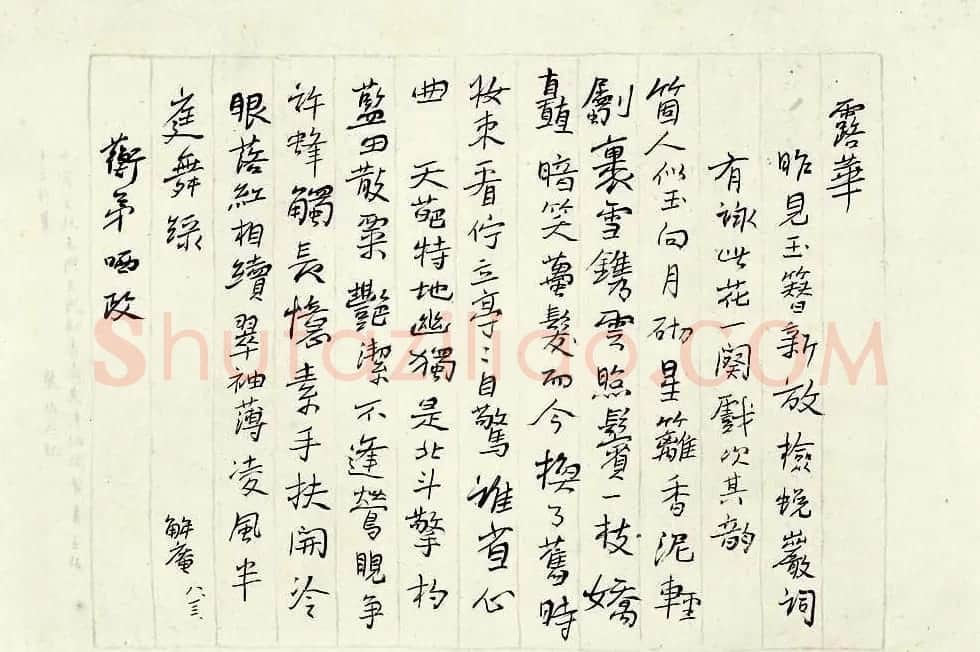 露華
昨見玉簪新放檢蛻巖詞
有詠此花一闋戲次其韵
箇人似玉向月砌星籬香泥輕
劚裏雪鐫雲照鬢一枝嬌
矗暗笑蠆髮而今換了舊時
妝束看佇立亭〻自驚誰省心
曲 天葩特地幽獨是北斗擎杓
藍田散粟艷潔不逢鶯睍爭
許蜂觸長憶素手扶開冷
眼落紅相續翠袖薄凌風半
庭舞綠
蘅弟哂政
解庵 八三、
Shufaziliao.COM